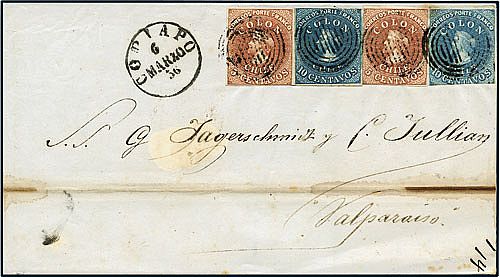 COPIAPO
6
MARZO
56
CORREOS PORTE FRANCO
COLON
CHILE
5 CENTAVOS
CORREOS PORTE FRANCO
COLON
CHILE
10 CENTAVOS
CORREOS PORTE FRANCO
COLON
CHILE
5 CENTAVOS
CORREOS PORTE FRANCO
COLON
CHILE
10 CENTAVOS
S. S. G Jagerschmidt y C. Jullian
Valparaiso.